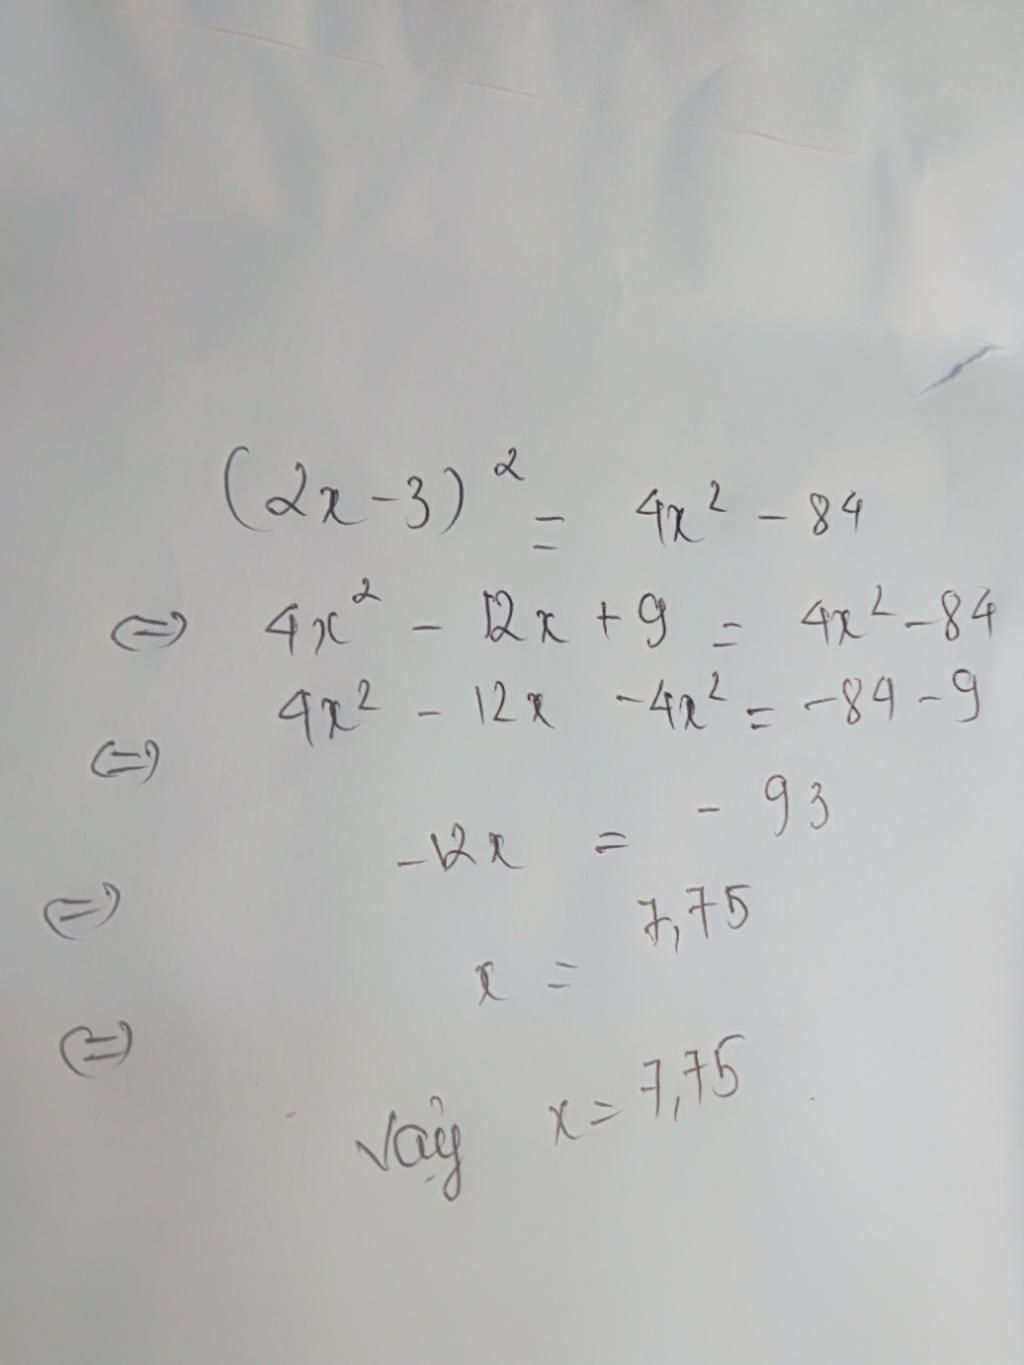 (2x-3)² = 4x² - 84
⇔ 4x² - 12x + 9 = 4x² - 84
⇔ 4x² - 12x - 4x² = -84 - 9
⇔ -12x = - 93
⇔ x = 7,75
vậy x = 7,75